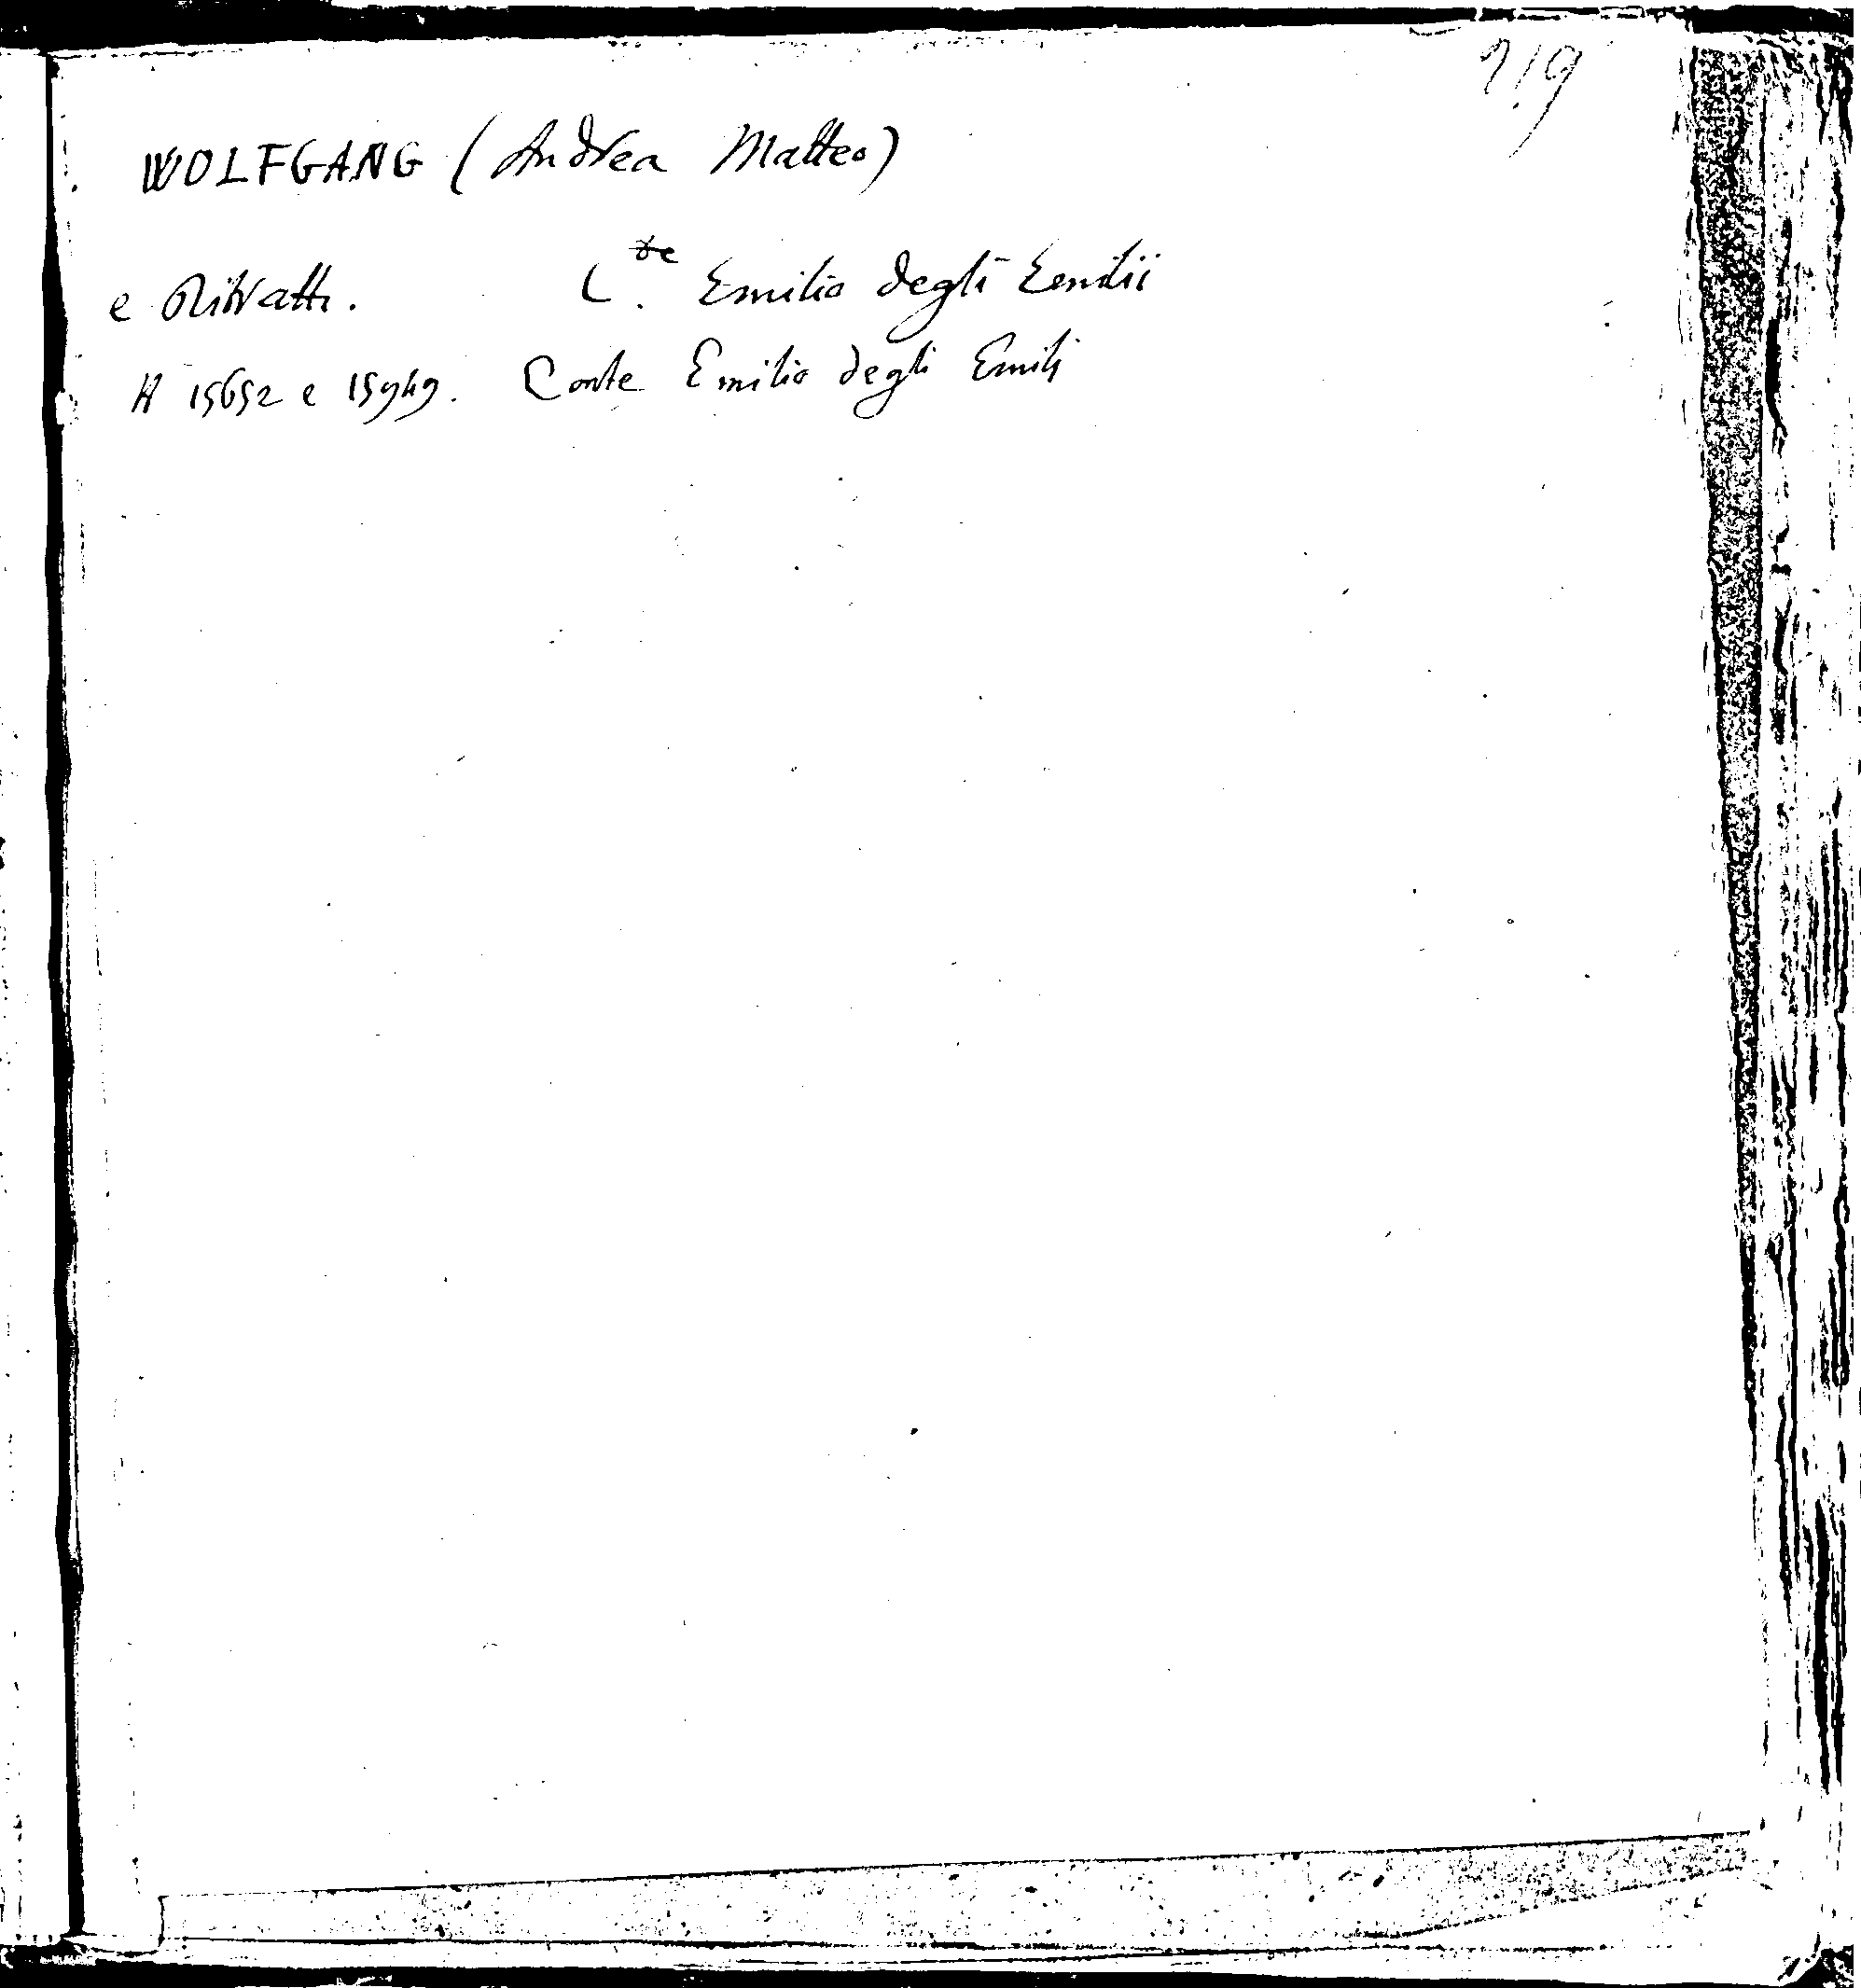 219
WOLFGANG (Andrea Matteo)
e Ritratti. C.te Emilio degli Emilii
A 15652 e 15949. Conte Emilio degli Emilj